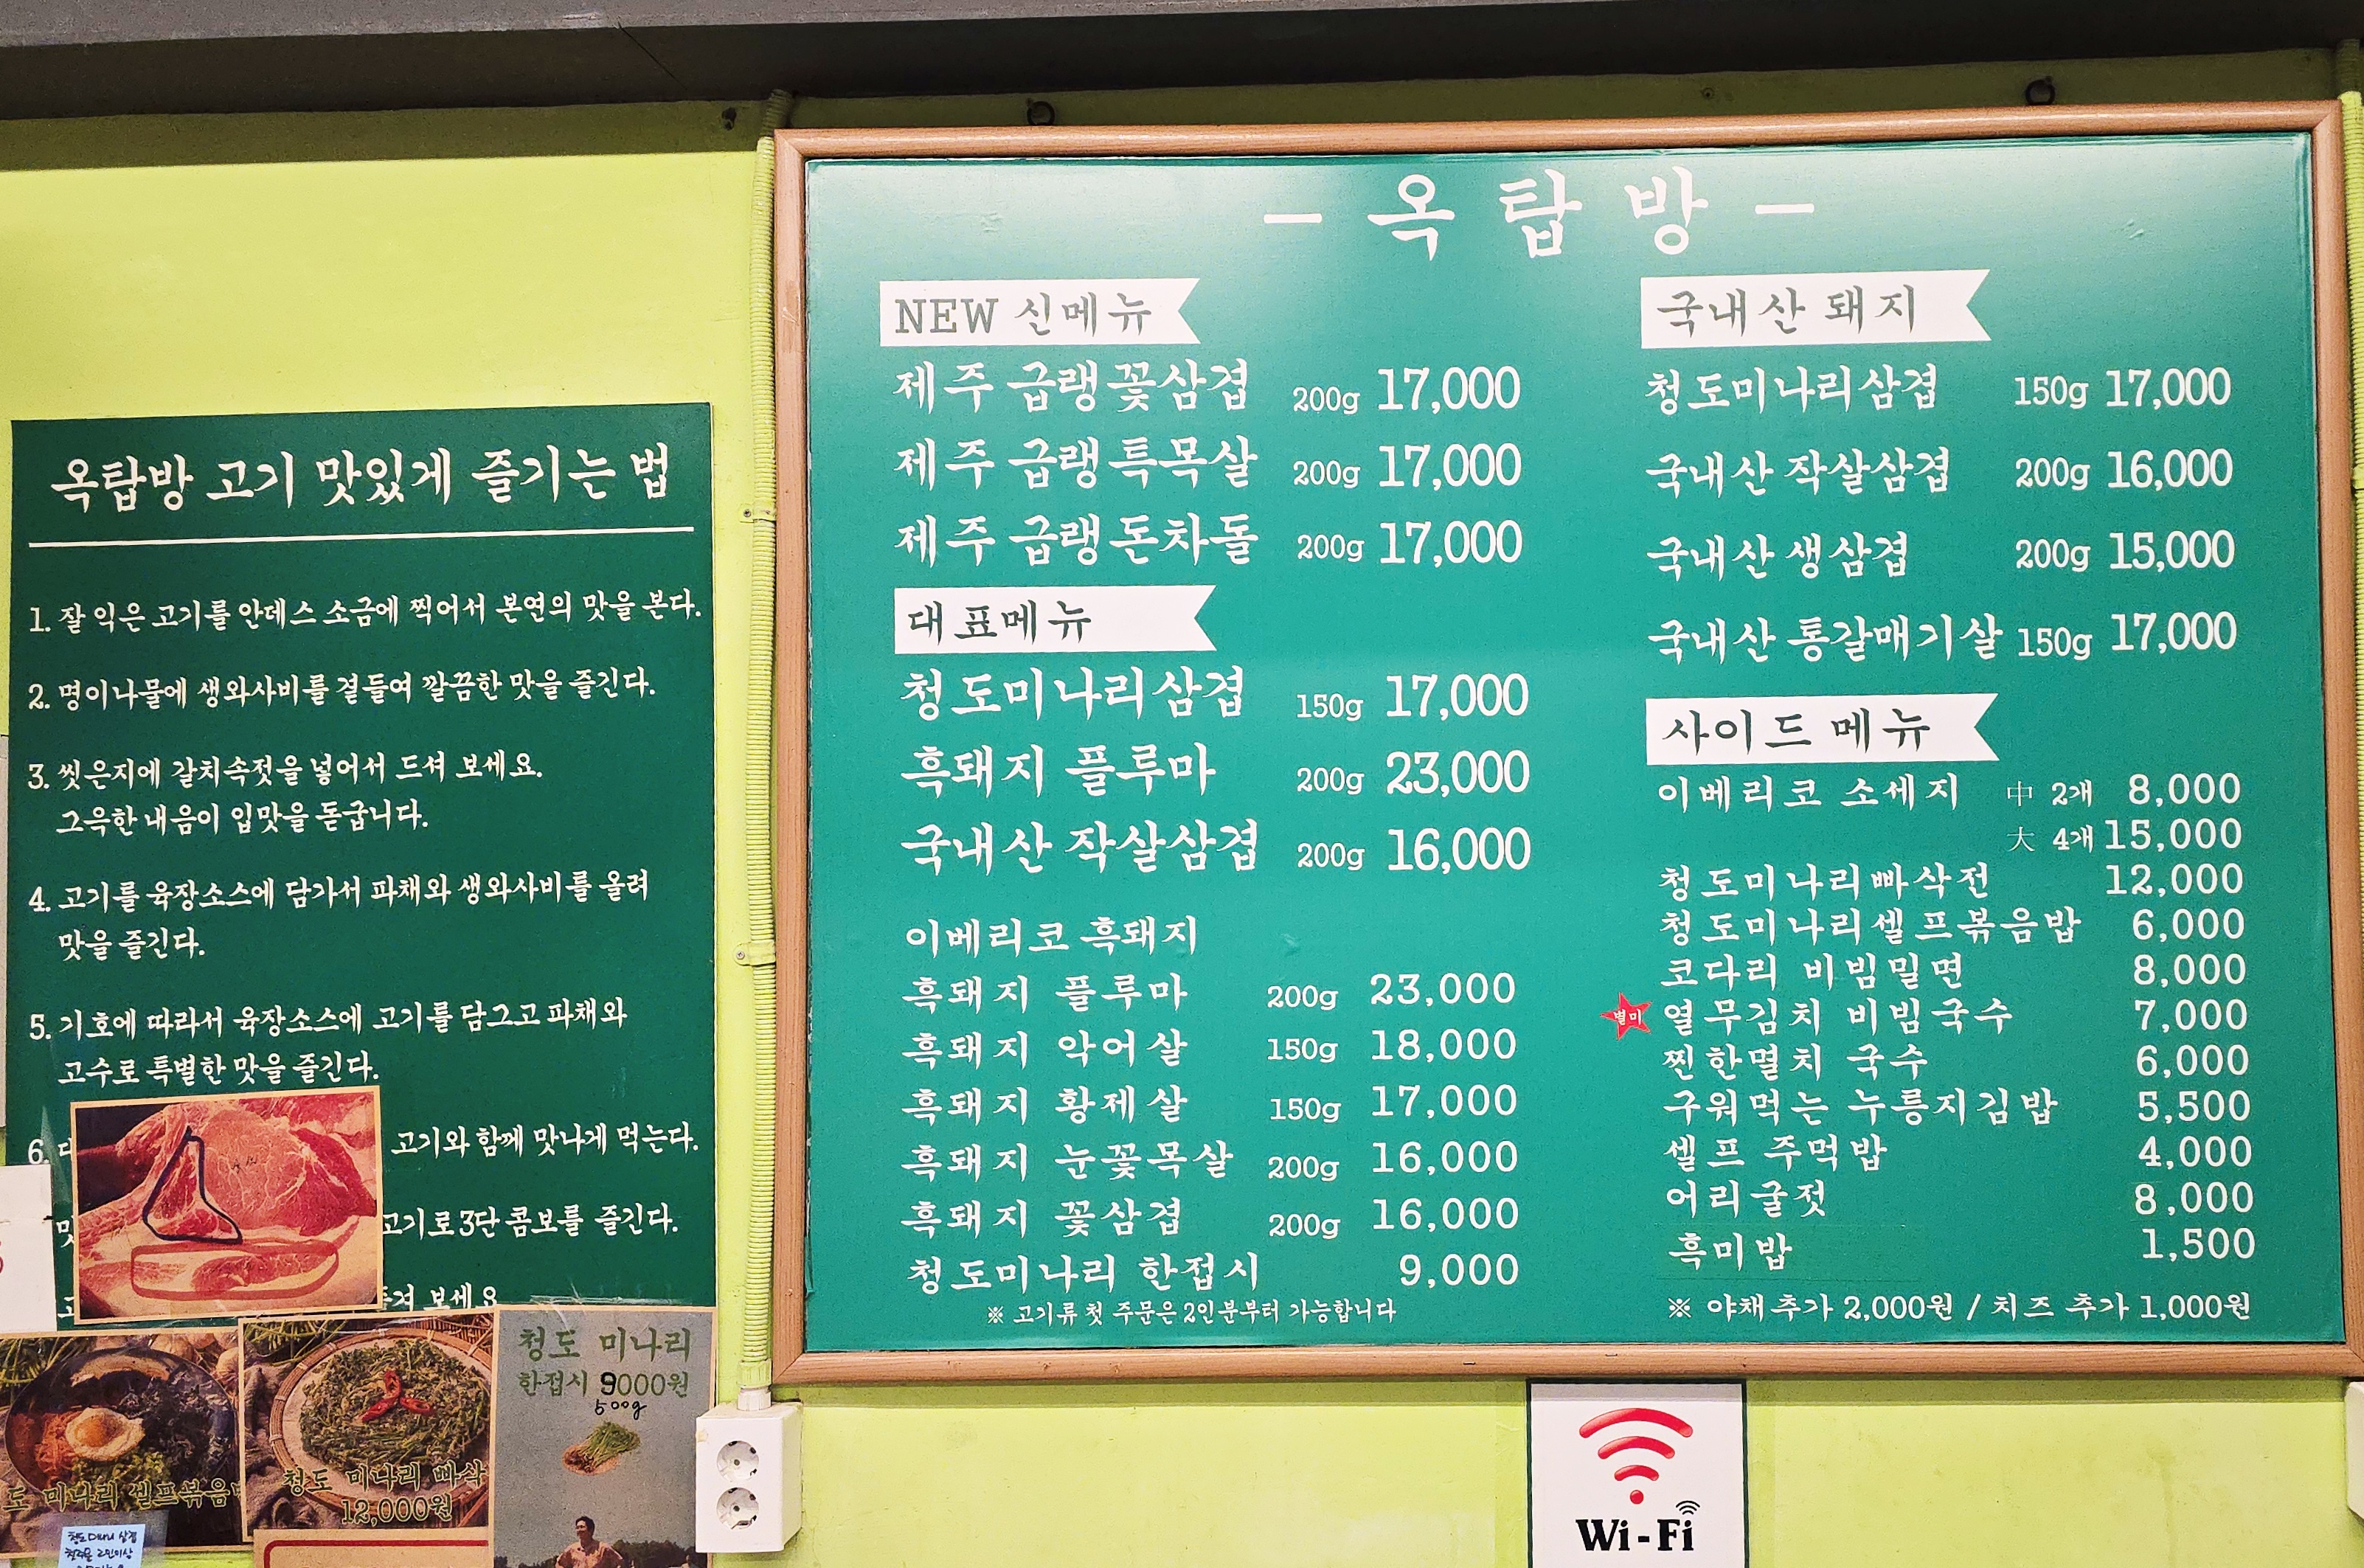 옥탑방 고기 맛있게 즐기는 법
1. 잘 익은 고기를 안데스 소금에 찍어서 본연의 맛을 본다.
2. 명이나물에 생와사비를 곁들여 깔끔한 맛을 즐긴다.
3. 씻은지에 갈치속젓을 넣어서 드셔 보세요.
그윽한 내음이 입맛을 돋굽니다.
4. 고기를 육장소스에 담가서 파채와 생와사비를 올려
맛을 즐긴다.
5. 기호에 따라서 육장소스에 고기를 담그고 파채와
고수로 특별한 맛을 즐긴다.
6. 고기와 함께 맛나게 먹는다.
고기로 3단 콤보를 즐긴다.
보세요
미나리 셀프볶음
청도 미나리 빠삭
12,000원
청도 미나리
한접시 9000원
500g
- 옥탑방 -
NEW 신메뉴
제주 급랭꽃삼겹 200g 17,000
제주 급랭특목살 200g 17,000
제주 급랭돈차돌 200g 17,000
대표메뉴
청도미나리삼겹 150g 17,000
흑돼지 플루마 200g 23,000
국내산 작살삼겹 200g 16,000
이베리코 흑돼지
흑돼지 플루마 200g 23,000
흑돼지 악어살 150g 18,000
흑돼지 황제살 150g 17,000
흑돼지 눈꽃목살 200g 16,000
흑돼지 꽃삼겹 200g 16,000
청도미나리 한접시 9,000
※ 고기류 첫 주문은 2인분부터 가능합니다
국내산 돼지
청도미나리삼겹 150g 17,000
국내산 작살삼겹 200g 16,000
국내산 생삼겹 200g 15,000
국내산 통갈매기살 150g 17,000
사이드 메뉴
이베리코 소세지 中 2개 8,000
大 4개 15,000
청도미나리빠삭전 12,000
청도미나리셀프볶음밥 6,000
코다리 비빔밀면 8,000
별미 열무김치 비빔국수 7,000
찐한멸치 국수 6,000
구워먹는 누릉지김밥 5,500
셀프 주먹밥 4,000
어리굴젓 8,000
흑미밥 1,500
※ 야채추가 2,000원 / 치즈 추가 1,000원
Wi-Fi